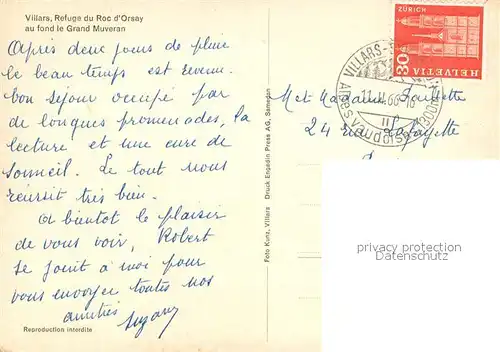 Villars, Refuge du Roc d'Orsay
au fond le Grand Muveran
Après deux jours de pluie
le beau temps est revenu.
bon séjour occupé par
de longues promenades, la
lecture et une cure de
sommeil. Le tout nous
réussit très bien.
A bientôt le plaisir
de vous voir, Robert
se joint à moi pour
vous envoyer toutes nos
amitiés
Suzanne
Reproduction interdite
Foto Kunz, Villars Druck Engadin Press AG, Samedan
ZÜRICH
30
HELVETIA
VILLARS-S
M et Madame
24 rue Lafayette
privacy protection
for address data